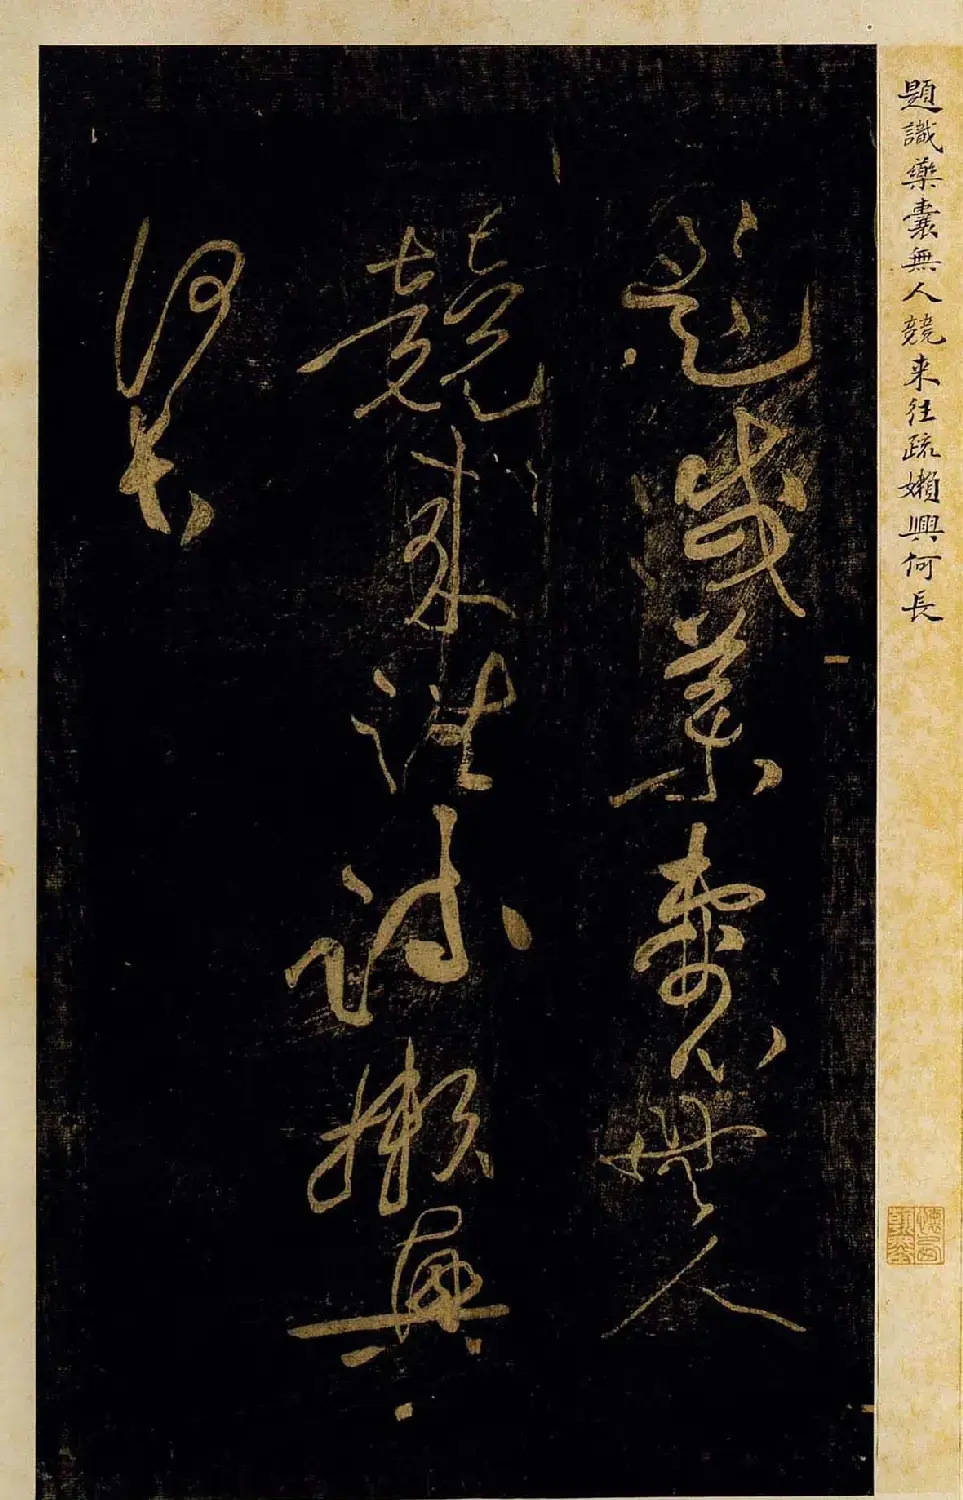 題識藥囊無人競来往疏嬾興何長
題識藥囊無人
競来往疏嬾興
何長